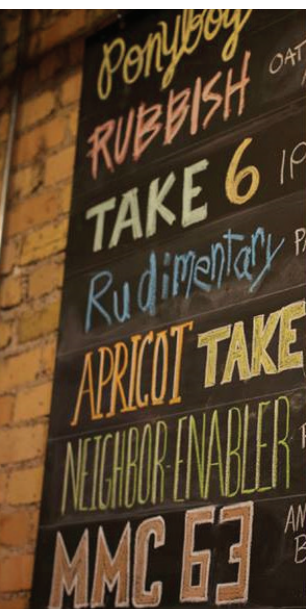 Ponyboy
RUBBISH OAT
TAKE 6 IP
Rudimentary PA
APRICOT TAKE
NEIGHBOR-ENABLER
MMC 63 AM
B